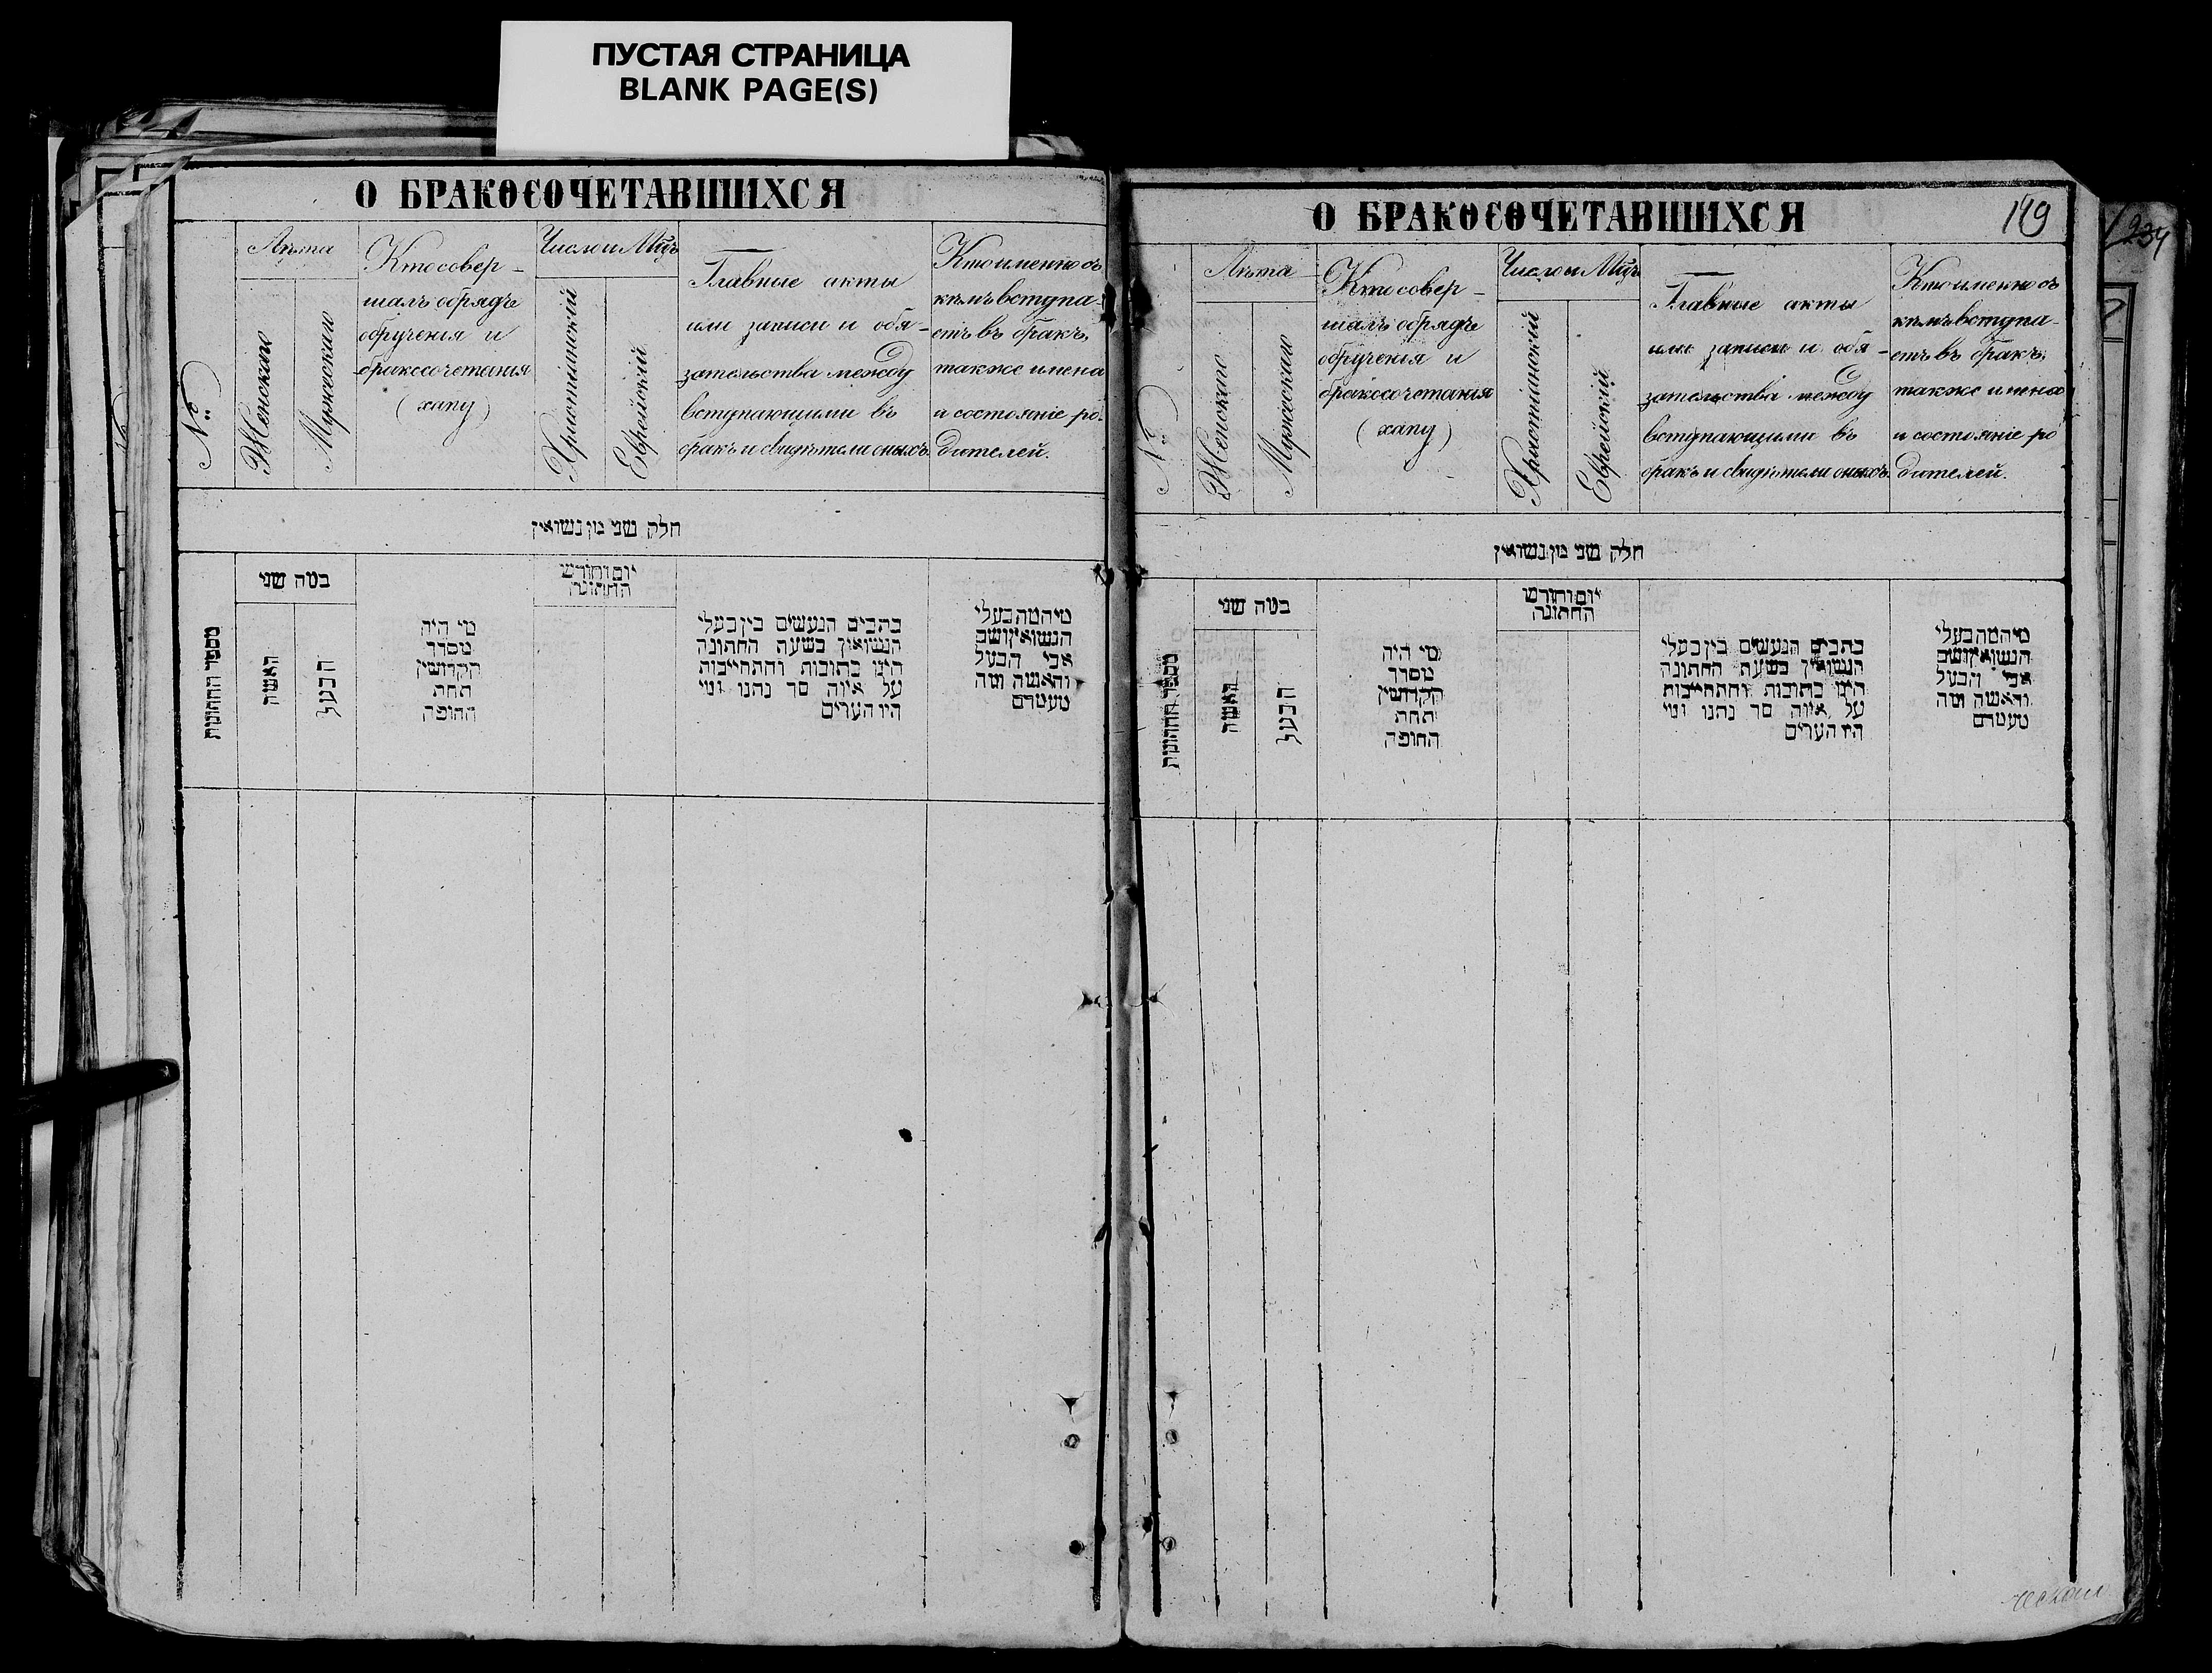 ПУСТАЯ СТРАНИЦА
BLANK PAGE(S)
О БРАКОСОЧЕТАВШИХСЯ
№
Лѣта
Женскаго
Мужескаго
Кто совер-
шалъ обрядъ
обрученія и
бракосочетанія
(хапу)
Число и Мѣцъ
Христіанскій
Еврейскій
Главные акты
или записи и обя-
зательства между
вступающими въ
бракъ и свидѣтели оныхъ.
Кто именно съ
кѣмъ вступа-
етъ въ бракъ,
также имена
и состояніе ро-
дителей.
חלק שני מן נשואין
מספר החתונות
במה שני
האשה
הבעל
מי היה
מסדר
הקדושין
תחת
החופה
יום וחודש
החתונה
כתבים הנעשים בין בעלי
הנשואין בשעת החתונה
היינו כתובות והתחייבות
על איזה סך נתנו ומי
היו העדים
מי המה בעלי
הנשואין ושם
אבי הבעל
והאשה ומה
מעמדם
О БРАКОСОЧЕТАВШИХСЯ
179
№
Лѣта
Женскаго
Мужескаго
Кто совер-
шалъ обрядъ
обрученія и
бракосочетанія
(хапу)
Число и Мѣцъ
Христіанскій
Еврейскій
Главные акты
или записи и обя-
зательства между
вступающими въ
бракъ и свидѣтели оныхъ.
Кто именно съ
кѣмъ вступа-
етъ въ бракъ,
также имена
и состояніе ро
дителей.
חלק שני מן נשואין
מספר החתונות
במה שני
האשה
הבעל
מי היה
מסדר
הקדושין
תחת
החופה
יום וחודש
החתונה
כתבים הנעשים בין בעלי
הנשואין בשעת החתונה
היינו כתובות והתחייבות
על איזה סך נתנו ומי
היו העדים
מי המה בעלי
הנשואין ושם
אבי הבעל
והאשה ומה
מעמדם